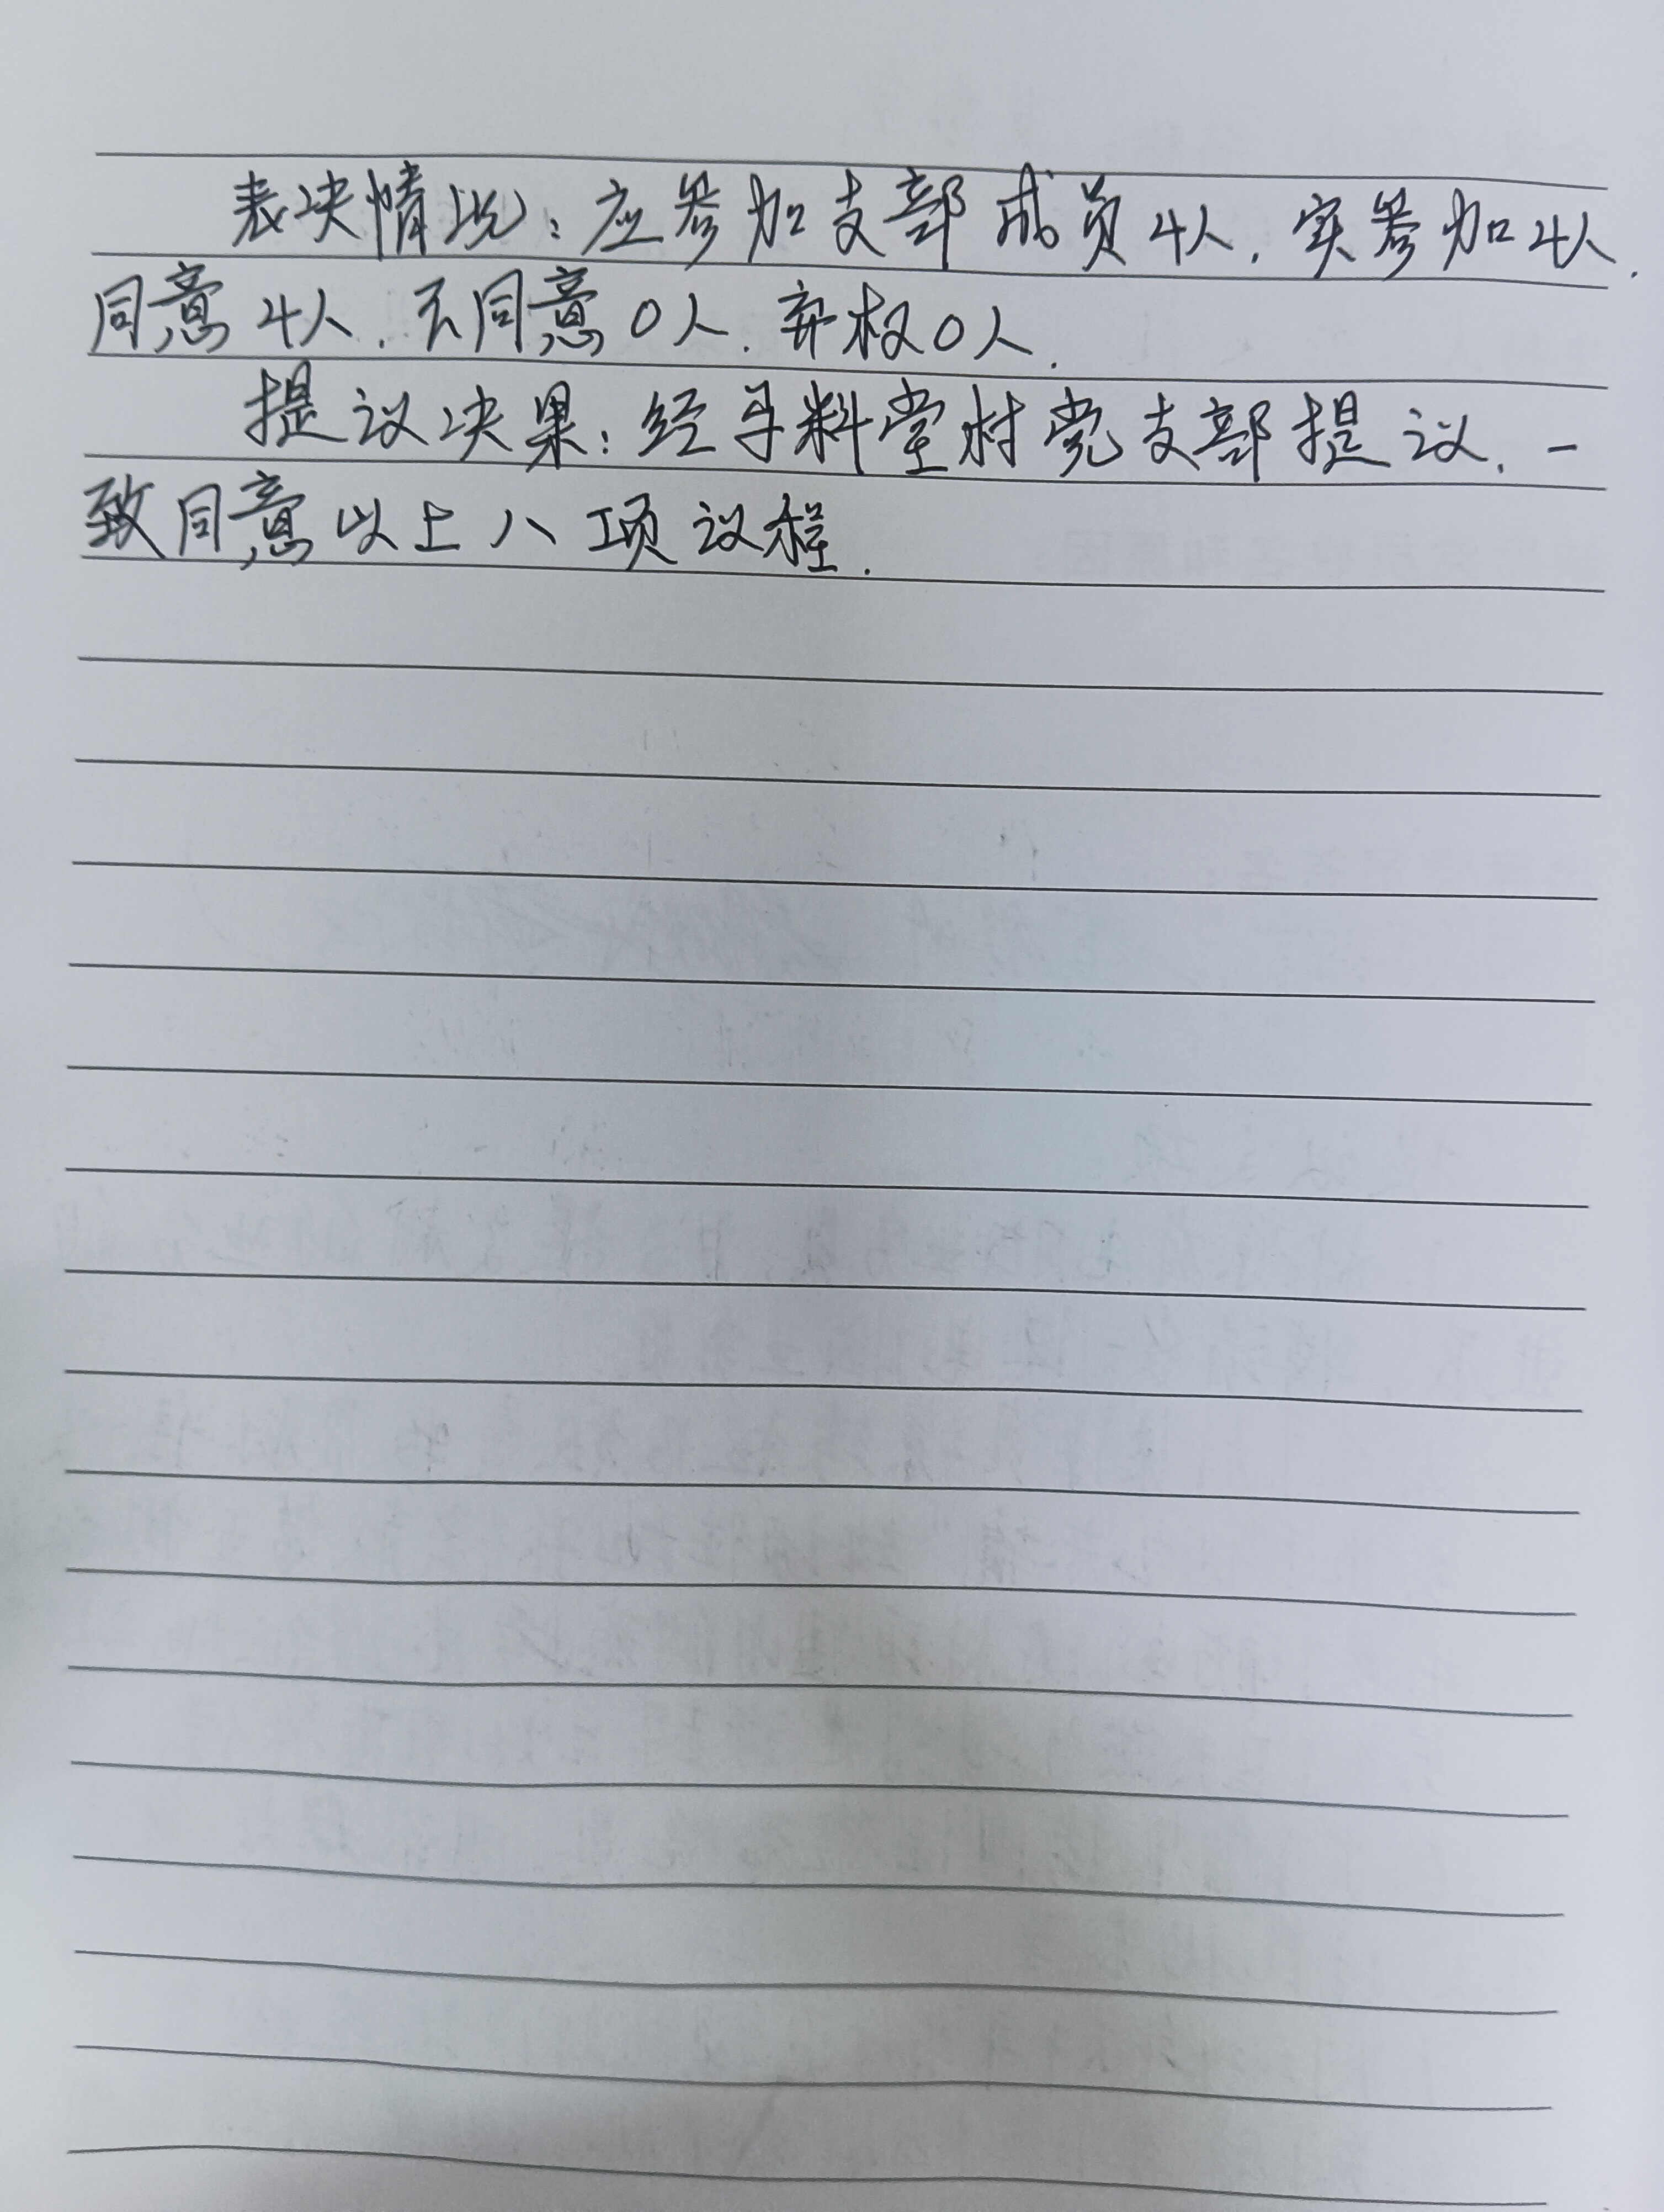 表决情况：应参加支部成员4人，实参加4人，
同意4人，不同意0人，弃权0人。
提议决果：经马料堂村党支部提议，一
致同意以上八项议程。